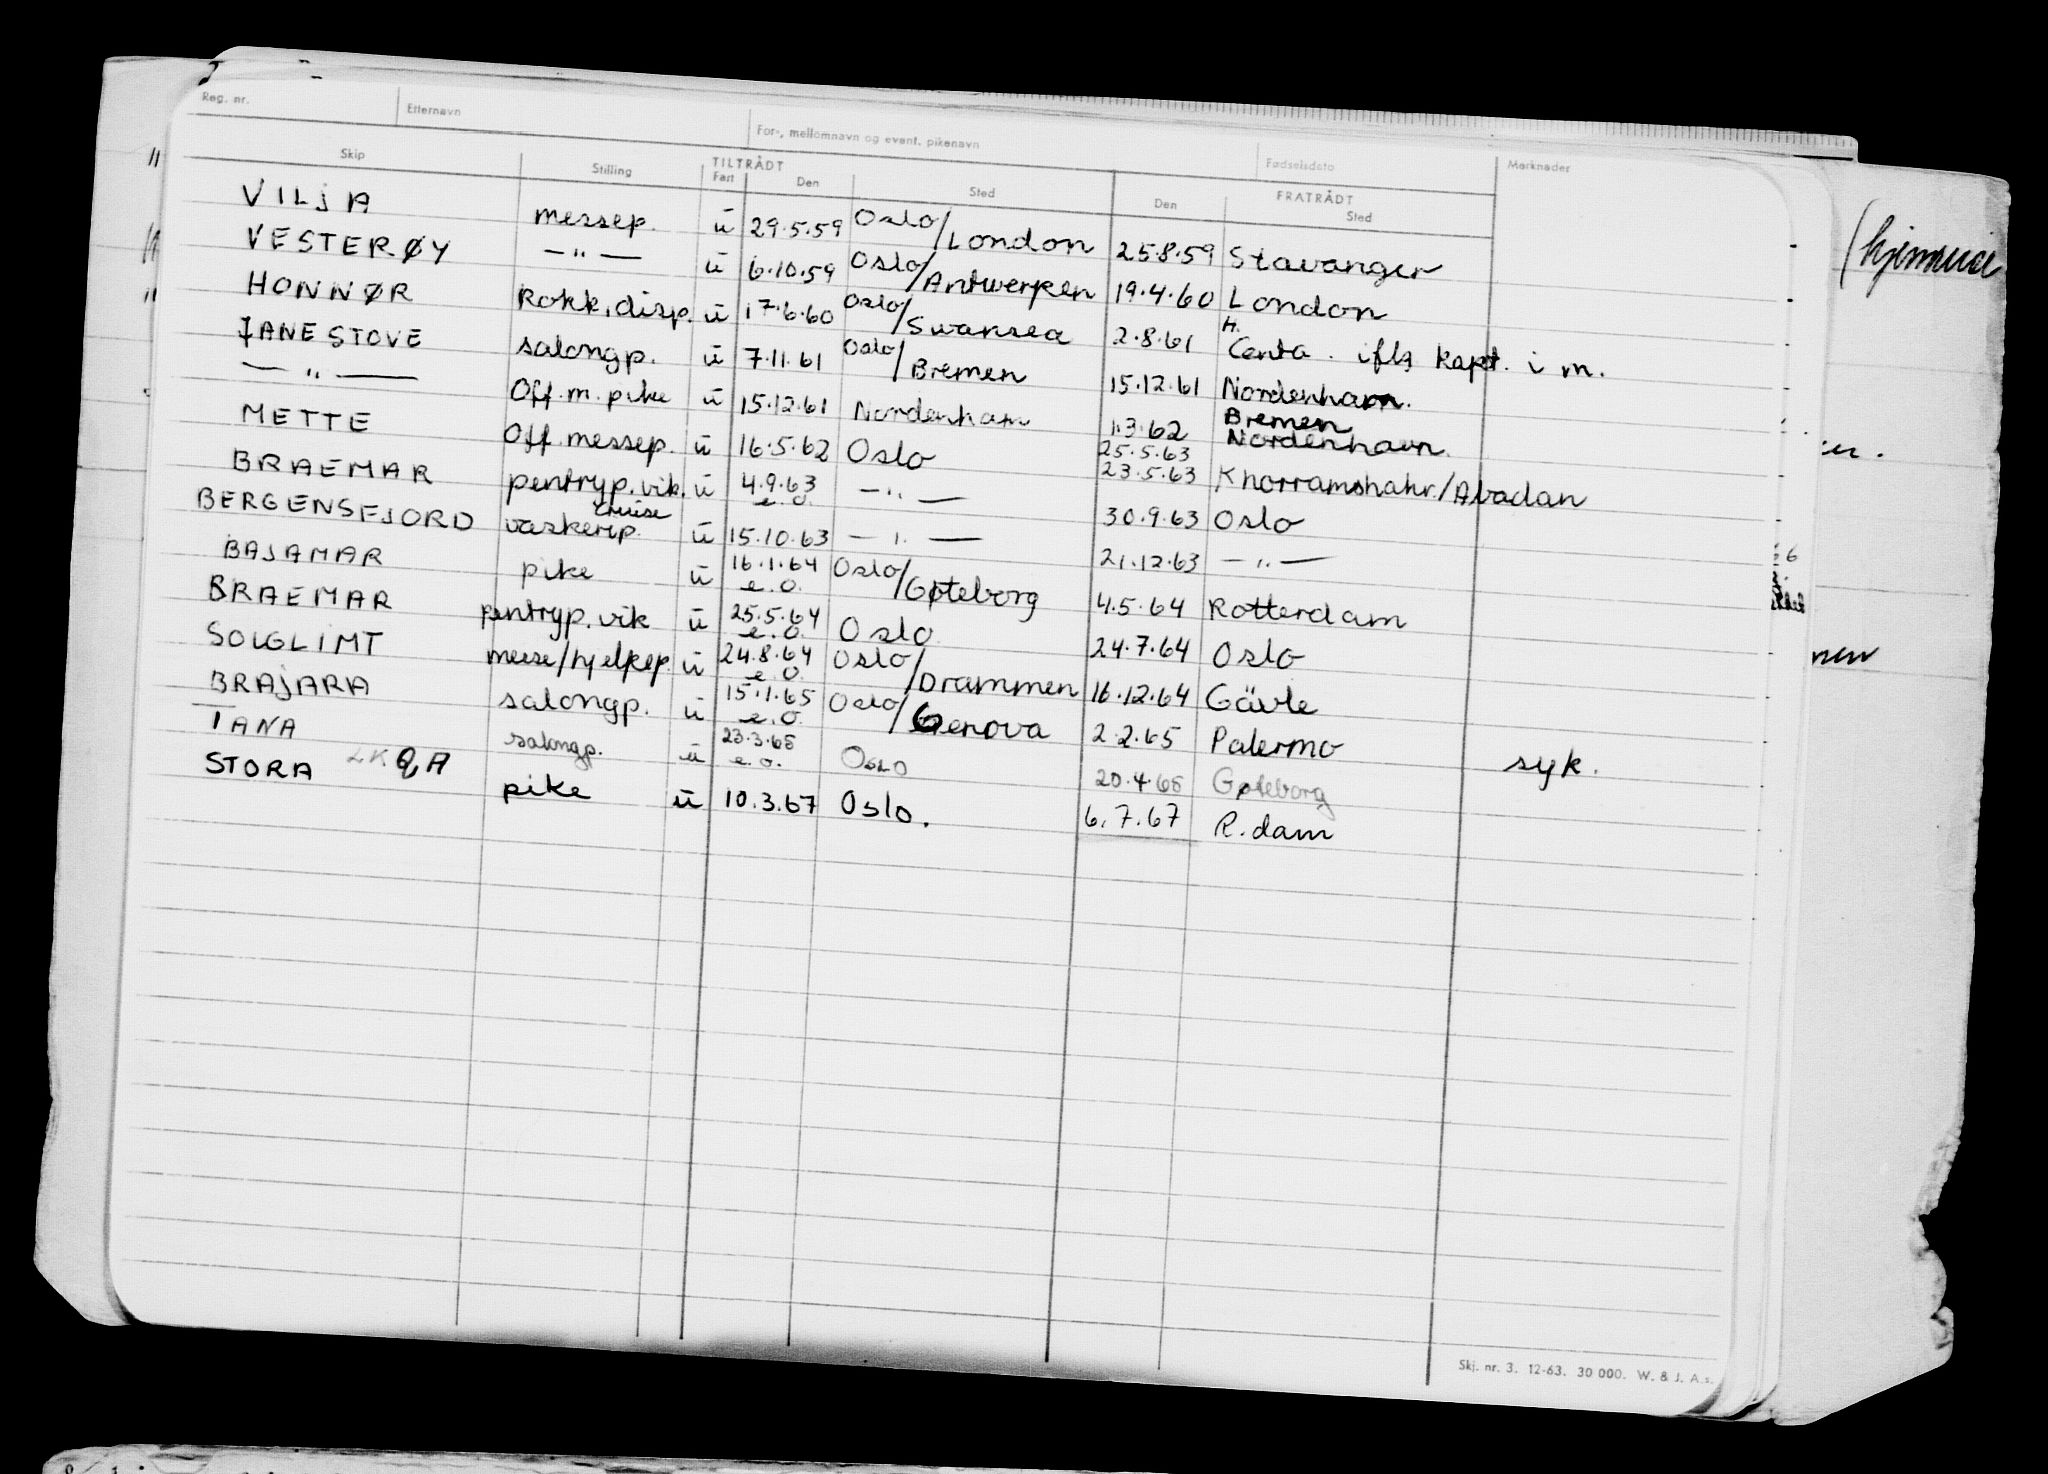 Reg. nr. Etternavn For-, mellomnavn og event. pikenavn Fødselsdato Merknader
Skip Stilling TILTRÅDT Fart Den Sted FRATRÅDT Den Sted
VILJA messep. ü 29.5.59 Oslo/London 25.8.59 Stavanger
VESTERØY —"— ü 6.10.59 Oslo/Antwerpen 19.4.60 London
HONNØR Kokk, disp. ü 17.6.60 Oslo/Swansea 2.8.61 H. Centa. iflg kapt. i m.
JANE STOVE salongp. ü 7.11.61 Oslo/Bremen 15.12.61 Nordenham.
—"— Off. m. pike ü 15.12.61 Nordenham 1.3.62 Bremen Nordenhavn.
METTE Off messep. ü 16.5.62 Oslo 25.5.63 23.5.63 Khorramshahr/Abadan
BRAEMAR pentryp. vik. ü 4.9.63 e.o. —"— 30.9.63 Oslo
BERGENSFJORD cruise vaskerip. ü 15.10.63 —"— 21.12.63 —"—
BAJAMAR pike ü 16.1.64 e.o. Oslo/Gøteborg 4.5.64 Rotterdam
BRAEMAR pentryp. vik ü 25.5.64 e.o. Oslo 24.7.64 Oslo
SOLGLIMT messe/hjelpep. ü 24.8.64 e.o. Oslo/Drammen 16.12.64 Gävle
BRAJARA salongp. ü 15.1.65 e.o. Oslo/Genova 2.2.65 Palermo syk.
TANA salongp. ü 23.3.65 e.o. Oslo 20.4.65 Gøteborg
STORA LKQA pike ü 10.3.67 Oslo. 6.7.67 R.dam
Skj. nr. 3. 12-63. 30 000. W. & J. A.s.